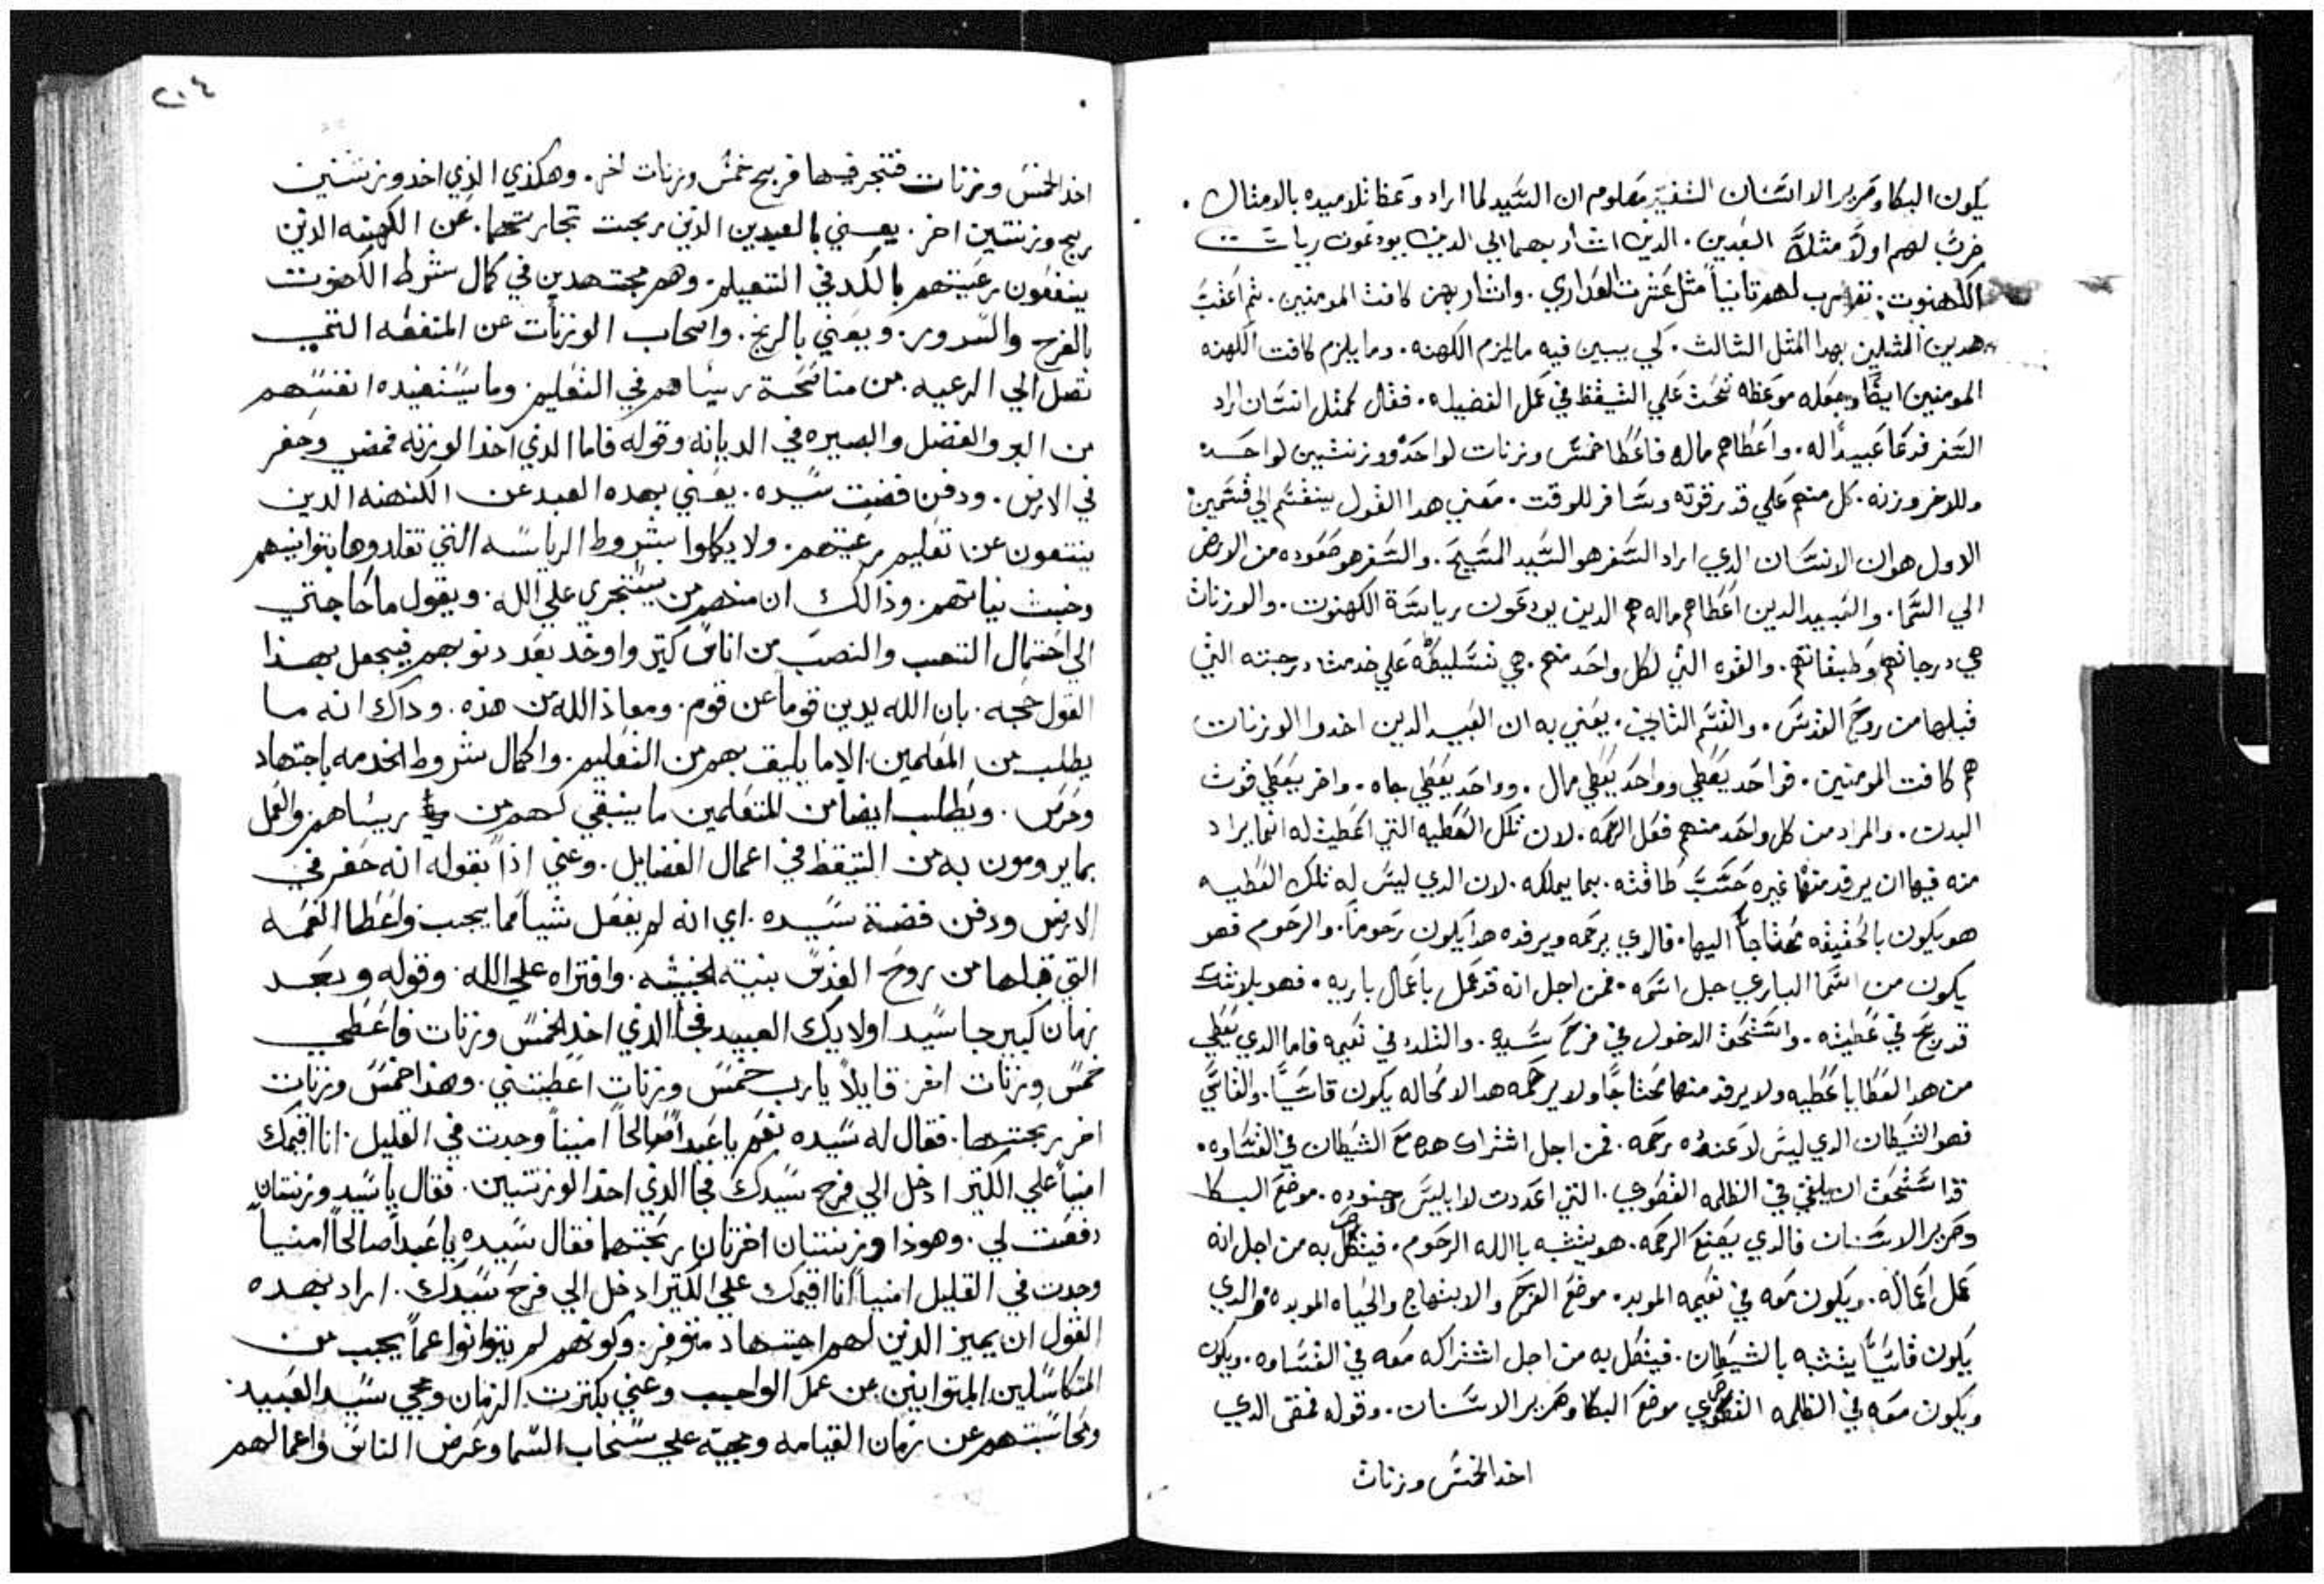 يكون البكا وصرير الاسنان التفسير معلوم ان السيد لما اراد وعظ تلاميذه بالامثال .
ضرب لهم اولاً مثل العبدين . الدين اشار بهما الي الدين يودعون رياست
الكهنوت . ثم ضرب لهم تانياً مثل عشرت العداري . واشار بهن كافت المومنين . ثم اعقب
هدين المثلين بهدا المثل الثالث . كي يبين فيه ما يلزم الكهنه . وما يلزم كافت الكهنه
المومنين ايضًا ويجعله موعظه تحث علي التيقظ في عمل الفضيله . فقال كمثل انسان اراد
السفر فدعا عبيداً له . واعطاهم ماله فاعطا خمس وزنات لواحد ووزنتين لواحد
وللاخر وزنه . كل منهم علي قدر قوته وسافر للوقت . معني هدا القول ينقسم الي قسمين
الاول هو ان الانسان الدي اراد السفر هو السيد المسيح . والسفر هو صعوده من الارض
الي السما . والعبيد الدين اعطاهم ماله هم الدين يودعون رياسة الكهنوت . والوزنات
هي درجاتهم وطبقاتهم . والقوه التي لكل واحد منهم . هي تسليطه علي خدمت درجته التي
قبلها من روح القدس . والقسم التاني . يعني به ان العبيد الدين اخدوا الوزنات
هم كافت المومنين . فواحد يعطي وواحد يعطي مال . وواحد يعطي جاه . واخر يعطي قوت
البدن . والمراد من كل واحد منهم فعل الرحمه . لان تلك العطيه التي اعطيت له انما يراد
منه فيها ان يرفد منها غيره حسب طاقته . بما يملكه . لان الدي ليس له تلك العطيه
هو يكون بالحقيقه محتاجاً اليها . فالدي يرحمه ويرفده هدا يكون رحوماً . والرحوم فهو
يكون من اسما الباري جل اسمه . فمن اجل انه قد عمل باعمال باريه . فهو بلا شك
قد ربح في عطيته . واستحق الدخول في فرح سيده . والتلدد في نعيمه فاما الدي يعطي
من هدا العطايا عطيه ولا يرفد منها محتاجاً ولا يرحمه هدا لا محاله يكون قاسياً . والقاسي
فهو الشيطان الدي ليس لا عنده رحمه . فمن اجل اشتراك هدا مع الشيطان في القساوه .
قد استحق ان يلقي في الظلمه القصوي . التي اعددت لابليس وجنوده . موضع البكا
وصرير الاسنان فالدي يصنع الرحمه . هو يتشبه باالله الرحوم . فيتصل به من اجل انه
عمل اعماله . ويكون معه في نعيمه الموبد . موضع الفرح والابتهاج والحياه الموبده والدي
يكون قاسياً يتشبه بالشيطان . فيتصل به من اجل اشتراكه معه في القساوه . ويكون
ويكون معه في الظلمه القصوي موضع البكا وصرير الاسنان . وقوله فمضى الدي
اخد الخمس وزنات
٢٠٤
اخد الخمس وزنات فتجر فيها فربح خمس وزنات اخر . وهكذي الذي اخد وزنتين
ربح وزنتين اخر . يعني بالعبدين الذين ربحت تجارتهما . عن الكهنه الذين
ينفعون رعيتهم بالكد في التعليم . وهم مجتهدين في كمال شرط الكهنوت
بالفرح والسرور . ويعني بالربح . واصحاب الوزنات عن المنفعه التي
تصل الي الرعيه . من مناصحة ريساهم في التعليم . وما يستفيده انفسهم
من البر والفضل والبصيره في الديانه وقوله فاما الذي اخذ الوزنه فمضي وحفر
في الارض . ودفن فضت سيده . يعني بهده العبد عن الكهنه الدين
يمتنعون عن تعليم رعيتهم . ولا يكملوا بشروط الرياسه التي تقلدوها بتوانيهم
وخبث نياتهم . وذالك ان منهم من يستجري علي الله . ويقول ما حاجتي
الي احتمال التعب والنصب من اناس كتير واوخد بعد دنوبهم فيجعل بهذا
القول حجه . بان الله يدين قوماً عن قوم . ومعاذ الله من هذه . وداك انه ما
يطلب من المعلمين . الا ما يليق بهم من التعليم . واكمال شروط الخدمه باجتهاد
وحرص . ويطلب ايضاً من المتعلمين ما ينبغي لهم من ريساهم والعمل
بما يرومون به من التيقظ في اعمال الفضايل . وعني اذاً بقوله انه حفر في
الارض ودفن فضة سيده . اي انه لم يفعل شياً مما يجب واعطا النعمه
التي قبلها من روح القدس بنيته الخبيثه . وافتراه علي الله . وقوله وبعد
زمان كبير جا سيد اولايك العبيد فجا الذي اخد الخمس وزنات فاعطي
خمس وزنات اخر . قايلاً يارب خمس وزنات اعطيتني . وهذا خمس وزنات
اخر ربحتها . فقال له سيده نعم يا عبداً صالحاً امنياً وجدت في القليل . انا اقيمك
امنياً علي الكتير ادخل الي فرح سيدك فجا الذي اخذ الوزنتين . فقال يا سيد وزنتان
دفعت لي . وهوذا وزنتان اخرتان ربحتهما فقال سيده يا عبداً صالحاً امنياً
وجدت في القليل امنياً انا اقيمك علي الكتير ادخل الي فرح سيدك . اراد بهده
القول ان يميز الدين لهم اجتهاد متوفر . وكونهم لم يتوانوا عماً يجب من
المتكاسلين المتوانيين عن عمل الواجب وعني بكترت الزمان ومجي سيد العبيد .
ومحاسبتهم عن زمان القيامه ومجيه علي سحاب السما وعرض الناس واعمالهم